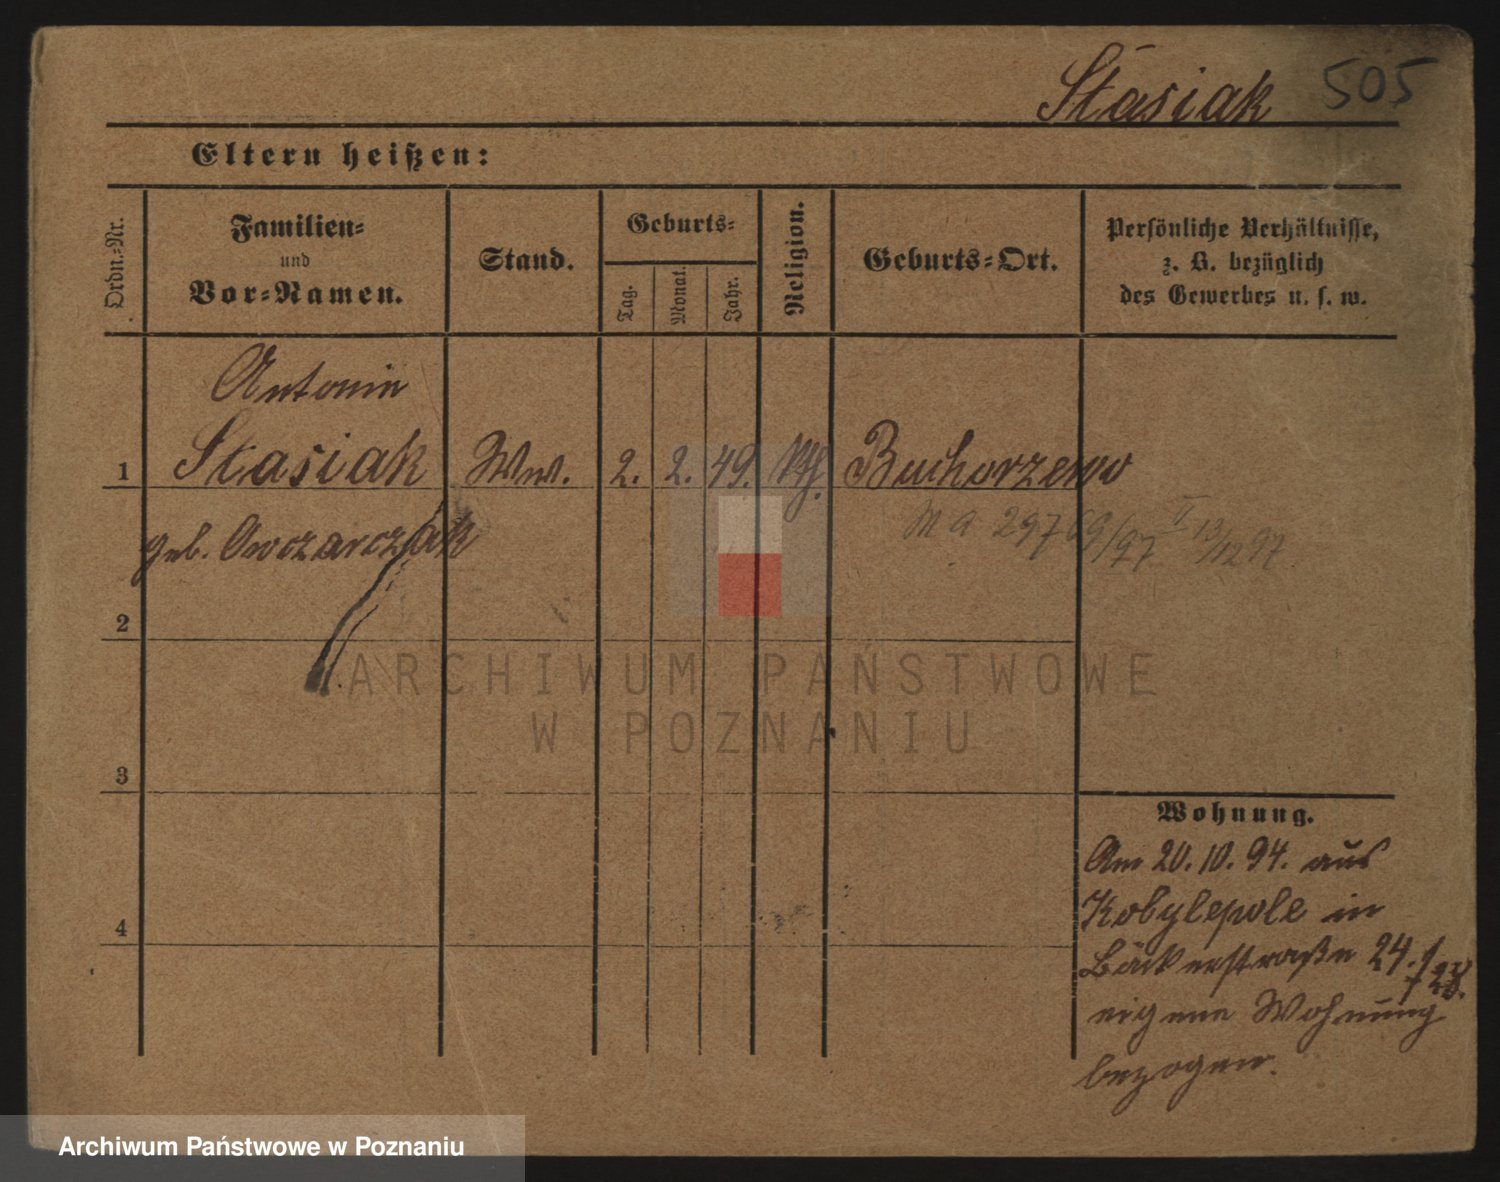 Stasiak 505
Eltern heißen:
Ordn.=Nr.
Familien=
und
Vor=Namen.
Stand.
Geburts=
Tag.
Monat.
Jahr.
Religion.
Geburts=Ort.
Persönliche Verhältnisse,
z. B. bezüglich
des Gewerbes u. s. w.
Antonie
1 Stasiak Ww. 2. 2. 49. kth. Buchorzewo
geb. Owczarczak
M A 297 69/97 II 13/12 97
2
ARCHIWUM PAŃSTWOWE
W POZNANIU
3
Wohnung.
Am 20.10.94. aus
Kobylepole in
4
Bäckerstraße 24. 
eigene Wohnung
bezogen.
Archiwum Państwowe w Poznaniu